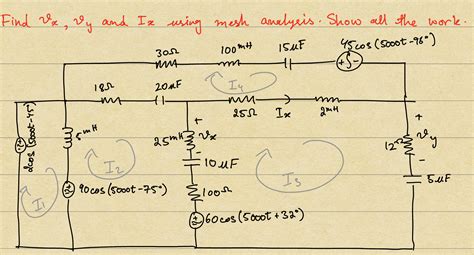 Find vx, vy and Ix using mesh analysis. Show all the work.
30Ω 100mH 15μF 45cos(5000t-96°)
I4
18Ω 20μF 25Ω Ix 2mH
2cos(5000t-45°) 5mH 25mH vx 12Ω vy
I1 I2 10μF I3 5μF
90cos(5000t-75°) 100Ω
60cos(5000t+32°)